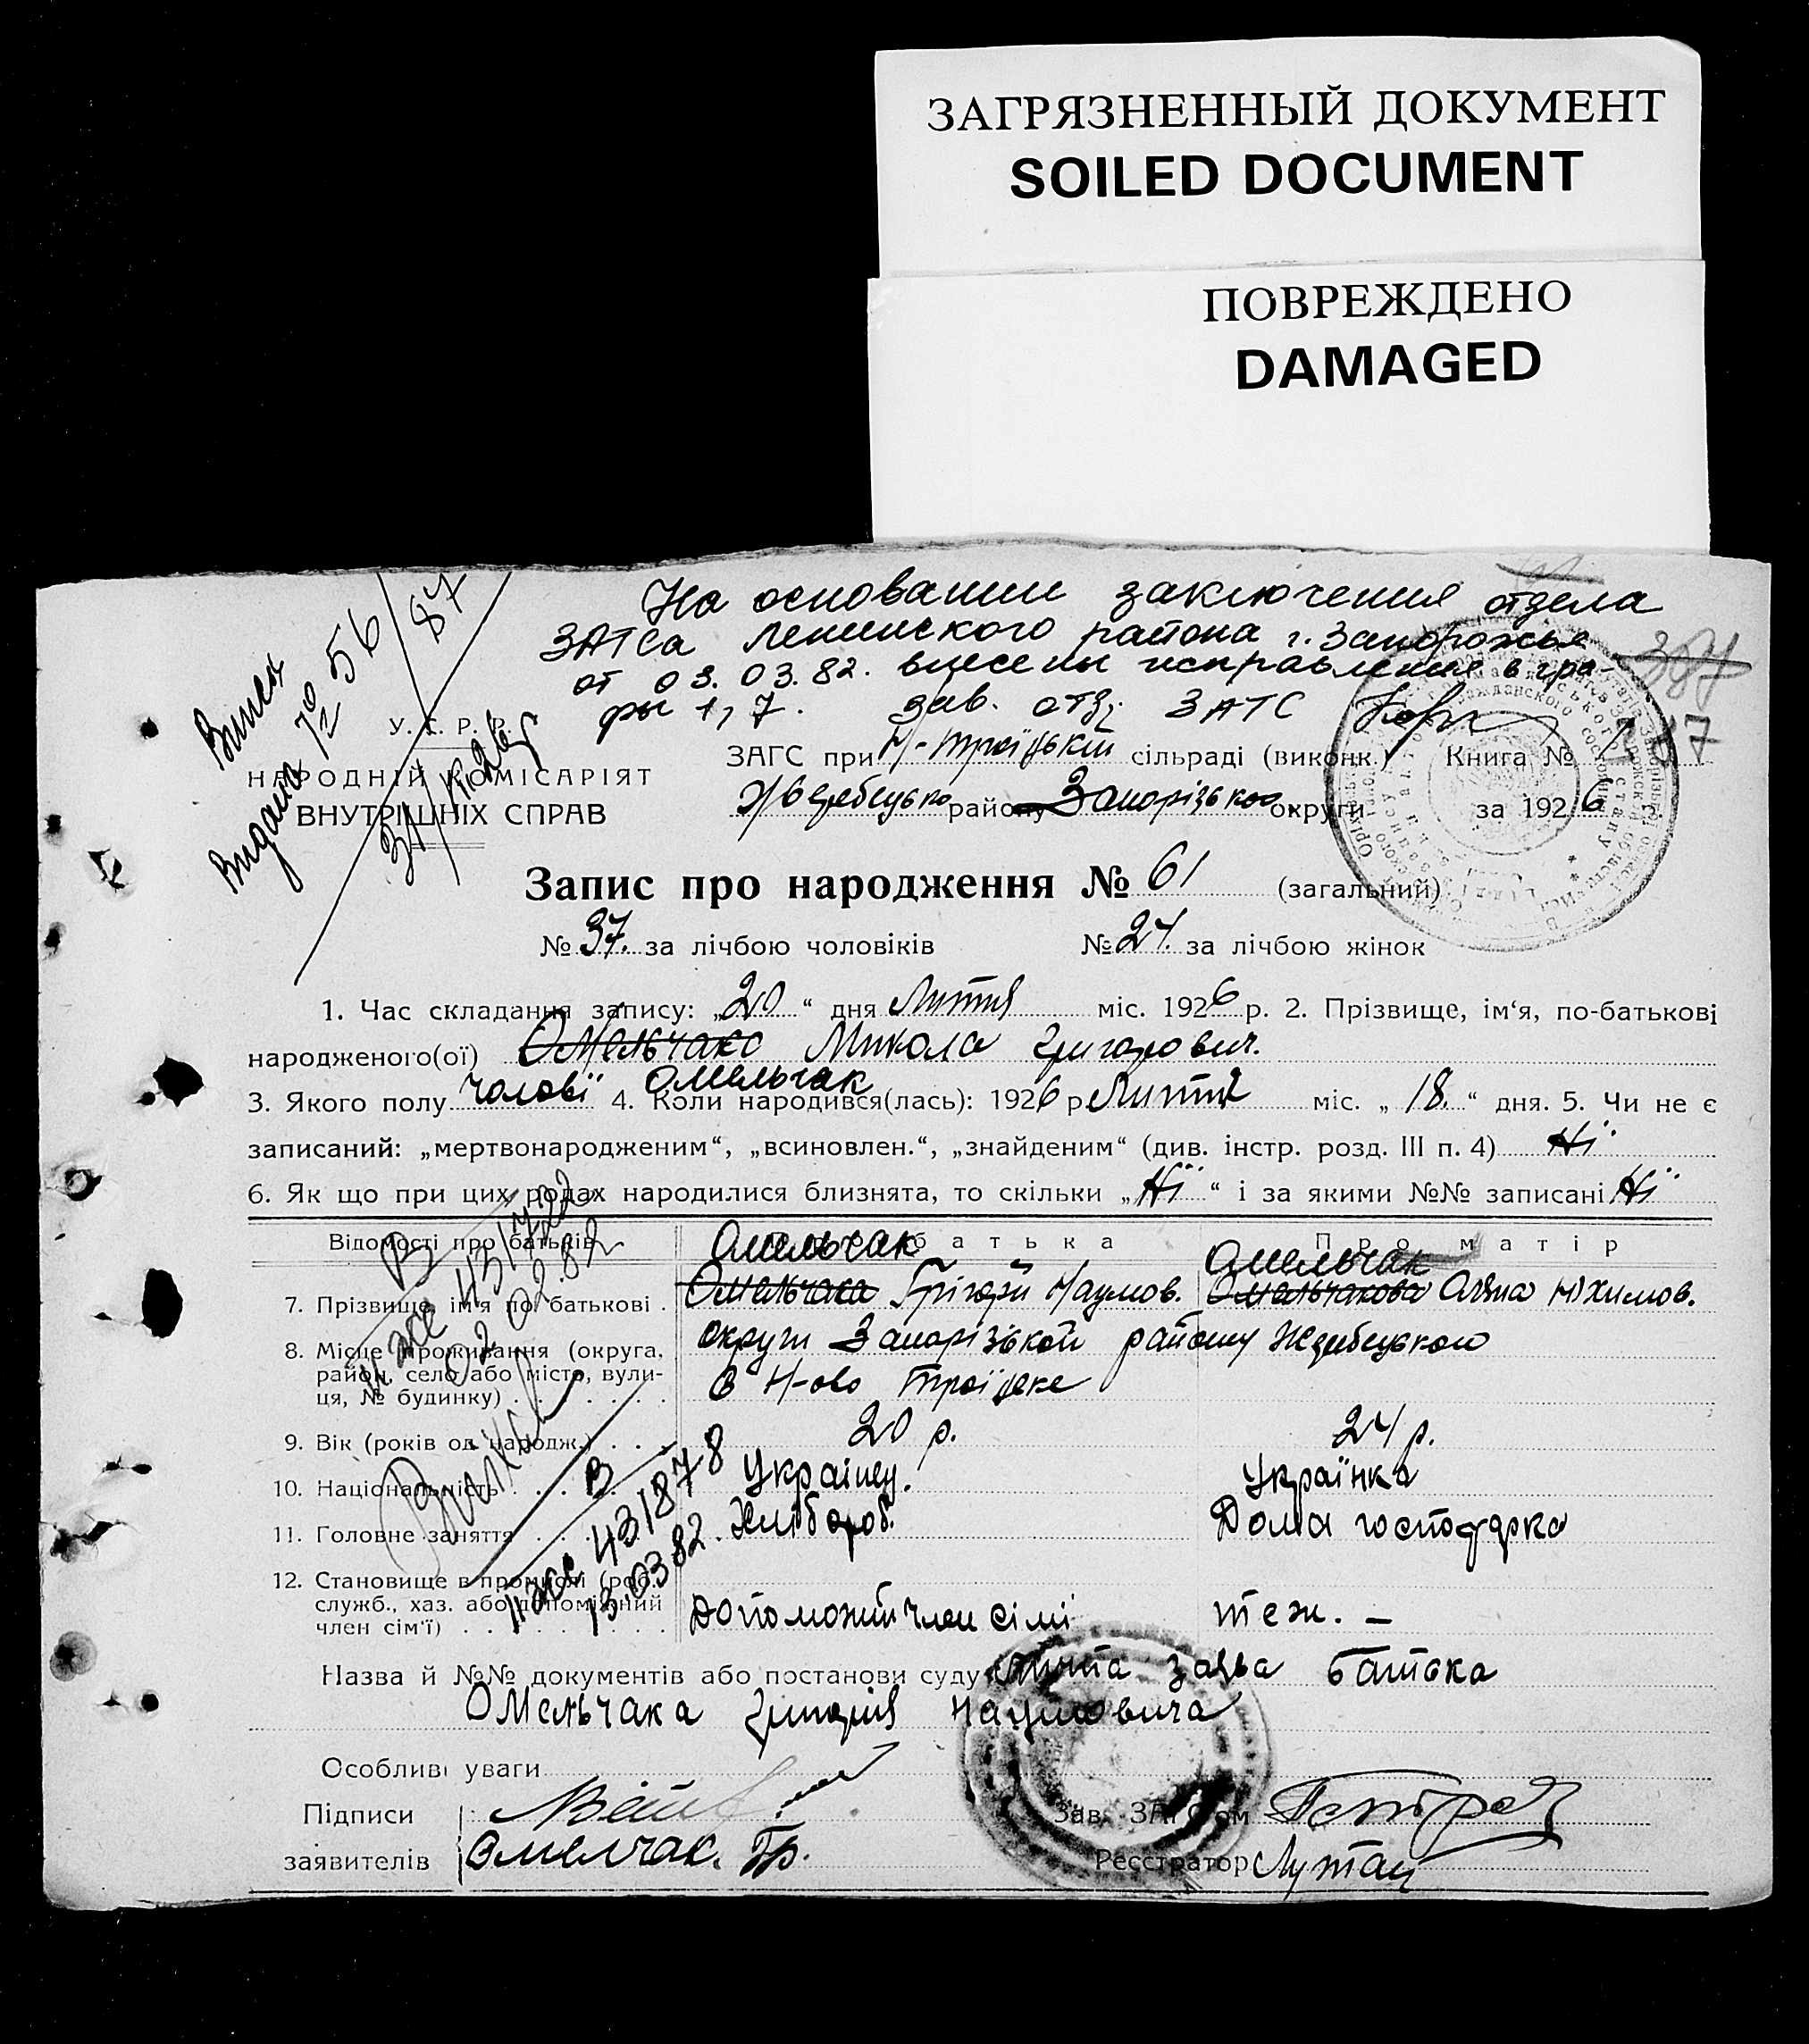 ЗАГРЯЗНЕННЫЙ ДОКУМЕНТ
SOILED DOCUMENT
ПОВРЕЖДЕНО
DAMAGED
На основании заключения отдела
ЗАГСа Ленинского района г. Запорожья
от 03.03.82. внесены исправления в гра-
фы 1, 7. зав. отд. ЗАГС
387
У. С. Р. Р.
НАРОДНІЙ КОМІСАРІЯТ
ВНУТРІШНІХ СПРАВ
ЗАГС при Н-Троїцькій сільраді (виконк.) Книга №
Жеребецько району Запорізько округи за 1926
Запис про народження № 61 (загальний)
№ 37. за лічбою чоловіків № 24. за лічбою жінок
1. Час складання запису: „20“ дня Лютня міс. 1926 р. 2. Прізвище, ім‘я, по-батькові
народженого(ої) Омельчако Микола Григорович.
Омельчак
3. Якого полу чолові 4. Коли народився(лась): 1926 р. Лютня міс. „18.“ дня. 5. Чи не є
записаний: „мертвонародженим“, „всиновлен.“, „знайденим“ (див. інстр. розд. III п. 4) Ні
6. Як що при цих родах народилися близнята, то скільки „Ні“ і за якими №№ записані Ні
Відомості про батьків батька Про матір
Омельчак Омельчак
7. Прізвище, ім‘я по батькові . Омельчака Григорій Наумов. Омельчакова Анна Юхимов.
8. Місце проживання (округа, район, село або місто, вули-ця, № будинку) округи Запорізькой району Жеребецького
с Н-ово Троїцьке
9. Вік (років од народж.) . . . 20 р. 24 р.
10. Національність . . . Українец. Українка
11. Головне заняття . . . Хлібороб. Дома господарка
12. Становище в промислі (роб., служб., хаз. або допоміжний член сім‘ї) . . . Допоможний член сімї теж. –
Назва й №№ документів або постанови суду заява батька
Омельчака Григорія Наумовича
Особливі уваги
Підписи
заявителів Омелчак. Гр.
Зав. ЗАГС‘ом
Реєстратор
Витяг
Видано 56/87
В
43/722
02.02.82
В
43/878
13.03.82.